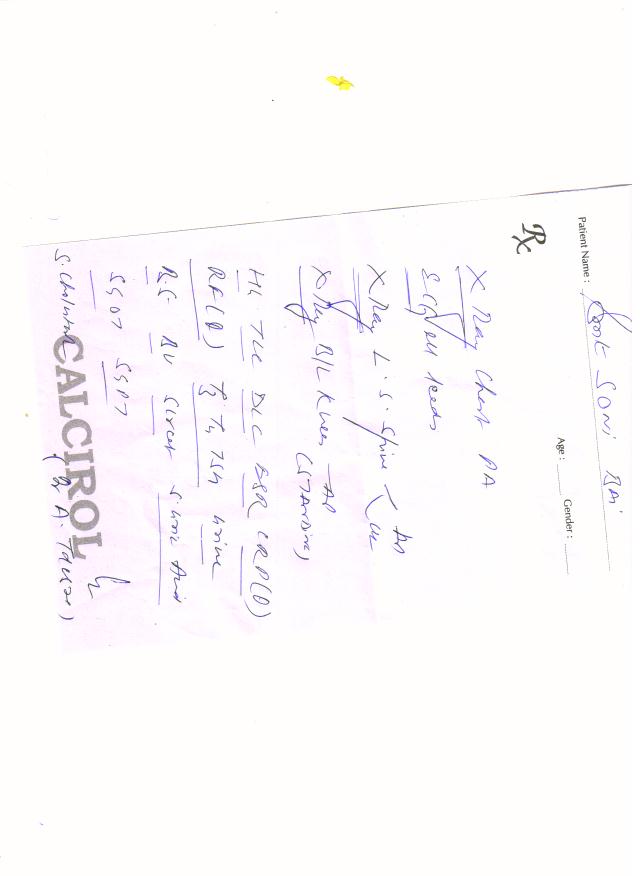 Patient Name : Smt SONi BAi
Age : Gender :
Rx
X Ray Chest PA
ECG all leads
X Ray L.S. Spine AP Lat
X Ray B/L Knees AP
(STANDING)
Hb TLC DLC ESR CRP(Q)
RF(Q) T3 T4 TSH Urine
R.S BU S. Uric Acid
SGOT SGPT
S. Cholesterol
CALCIROL